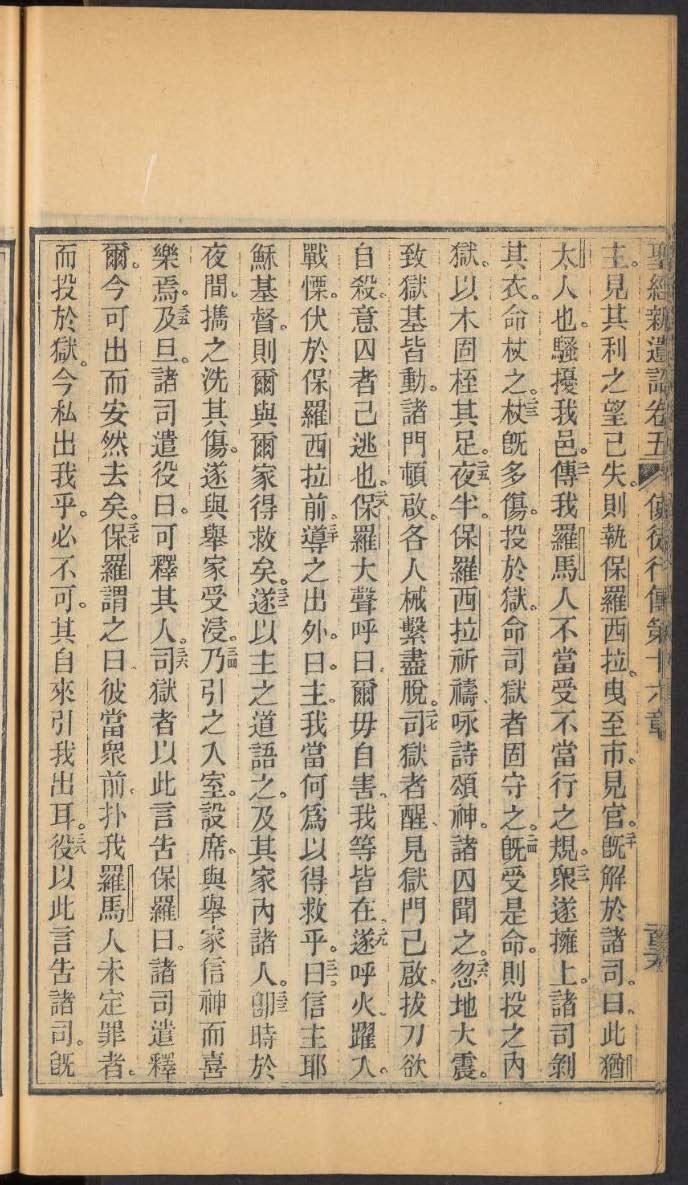 聖經新遺詔卷五 使徒行傳第十六章
主。見其利之望已失。則執保羅西拉。曳至市。見官。二十旣解於諸司。曰、此猶
太人也。騷擾我邑。二一傳我羅馬人不當受不當行之規。二二衆遂擁上。諸司剝
其衣。命杖之。二三杖旣多傷。投於獄。命司獄者固守之。二四旣受是命。則投之內
獄。以木固桎其足。二五夜半。保羅西拉祈禱、咏詩頌神。諸囚聞之。二六忽地大震。
致獄基皆動。諸門頓啟。各人械繫盡脫。二七司獄者醒、見獄門已啟。拔刀欲
自殺。意囚者已逃也。二八保羅大聲呼曰、爾毋自害。我等皆在。二九遂呼火、躍入。
戰慄。伏於保羅西拉前。三十導之出外。曰、主。我當何爲以得救乎。三一曰、信主耶
穌基督。則爾與爾家得救矣。三二遂以主之道語之。及其家內諸人。三三卽時於
夜間。攜之洗其傷。遂與舉家受浸。三四乃引之入室。設席。與舉家信神而喜
樂焉。三五及旦。諸司遣役曰。可釋其人。三六司獄者以此言告保羅曰。諸司遣釋
爾。今可出而安然去矣。三七保羅謂之曰、彼當衆前、扑我羅馬人未定罪者。
而投於獄。今私出我乎。必不可。其自來引我出耳。三八役以此言告諸司。旣